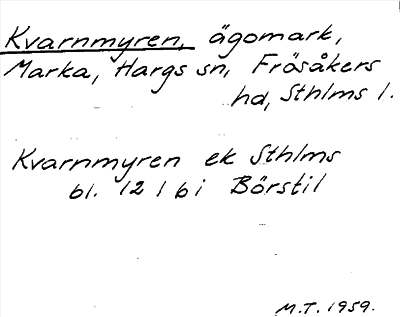 Kvarnmyren, ägomark,
Marka, Hargs sn, Frösåkers
hd, Sthlms l.
Kvarnmyren ek Sthlms
bl. 12 1 b i Börstil
M.T. 1959.